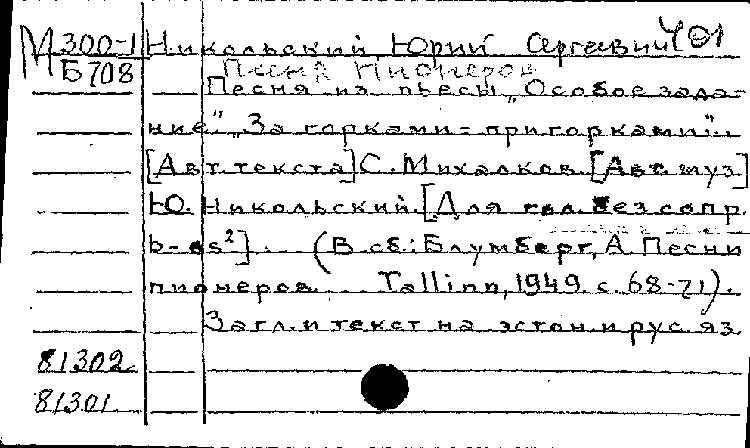 М 300-1 Никольский, Юрий Сергеевич 401
Б708 Песня Пионеров
Песня из пьесы „Особое зада-
ние". „За горками-пригорками".
[Авт. текста] С. Михалков. [Авт. муз]
Ю. Никольский. [Для гол. без сопр.
b-es²]... (В сб: Блумберг, А. Песни
пионеров... Tallinn, 1949. с. 68-71).
Загл. и текст на эстон. и рус. яз.
81302
81301